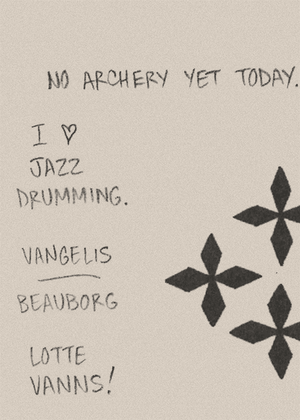 NO ARCHERY YET TODAY.
I ♡
JAZZ
DRUMMING.
VANGELIS
BEAUBORG
LOTTE
VANNS!